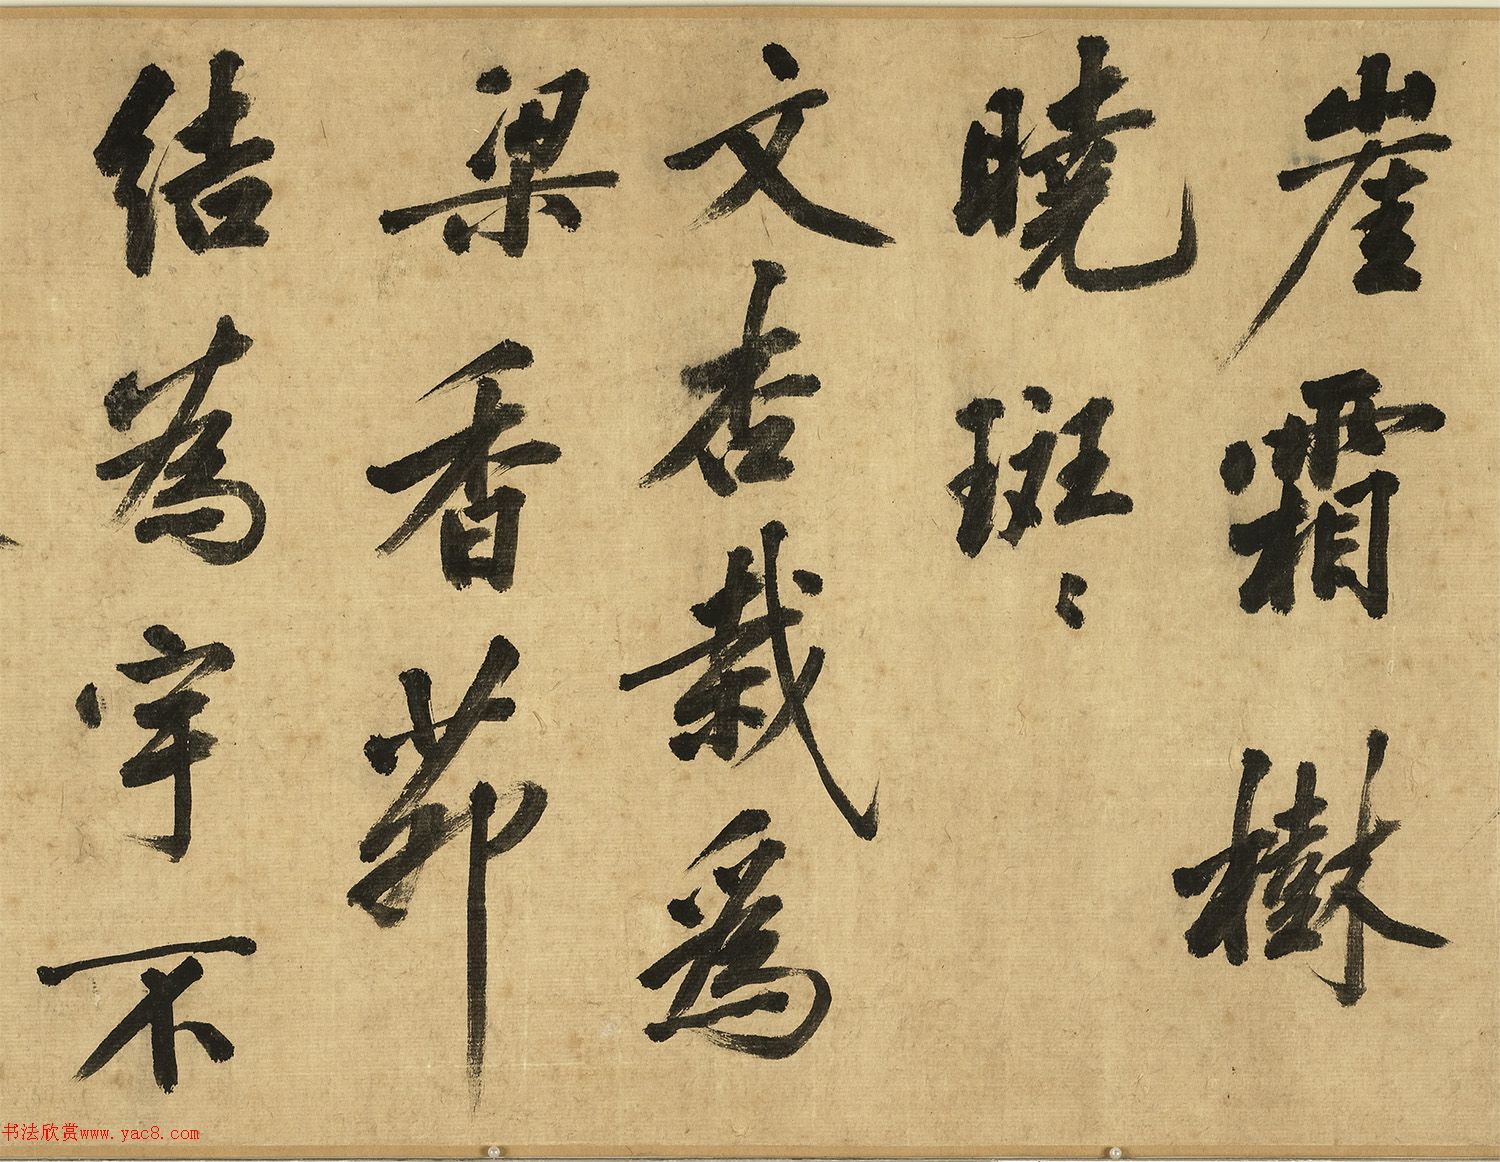 崖霜樹
曉斑〻
文杏栽爲
梁香茆
結為宇不
书法欣赏www.yac8.com